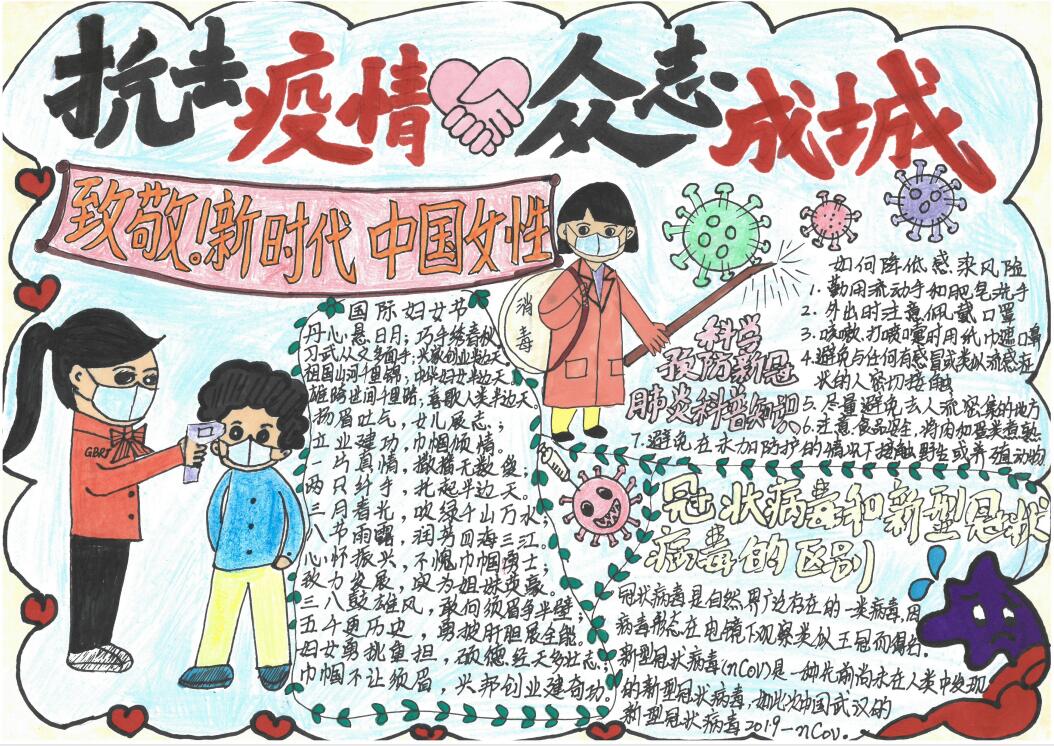 抗击疫情 众志成城
致敬!新时代 中国女性
国际妇女节
丹心悬日月,巧手绣春秋
习武从文多面手,兴家创业半边天
祖国山河千里锦,中华妇女半边天
雄跨世间千里路,喜歌人类半边天
扬眉吐气,女儿展志;
立业建功,巾帼倾情。
一片真情,撒播无数
两只纤手,扎起半边天。
三月春光,吹绿千山万水;
一节雨露,润秀四海三江。
心怀振兴,不愧巾帼勇士;
致力发展,实为姐妹英豪。
三八鼓雄风,敢问须眉争半壁;
五千更历史,勇披肝胆展全能。
妇女勇挑重担,硕德经天多壮志;
巾帼不让须眉,兴邦创业建奇功.
GBRJ
消毒
科学
预防新冠
肺炎科普知识
如何降低感染风险
1.勤用流动手和肥皂洗手
2.外出时注意佩戴口罩
3.咳嗽、打喷嚏时用纸巾遮口鼻
4.避免与任何有感冒或类似流感症
状的人密切接触
5.尽量避免去人流密集的地方
6.注意食品卫生,将肉和蛋类煮熟
7.避免在未加防护的情况下接触野生或养殖动物
冠状病毒和新型冠状
病毒的区别
冠状病毒是自然界广泛存在的一类病毒,因
病毒形态在电镜下观察类似王冠而得名.
新型冠状病毒(nCoV)是一种先前尚未在人类中发现
的新型冠状病毒,如此次中国武汉的
新型冠状病毒2019-nCoV.